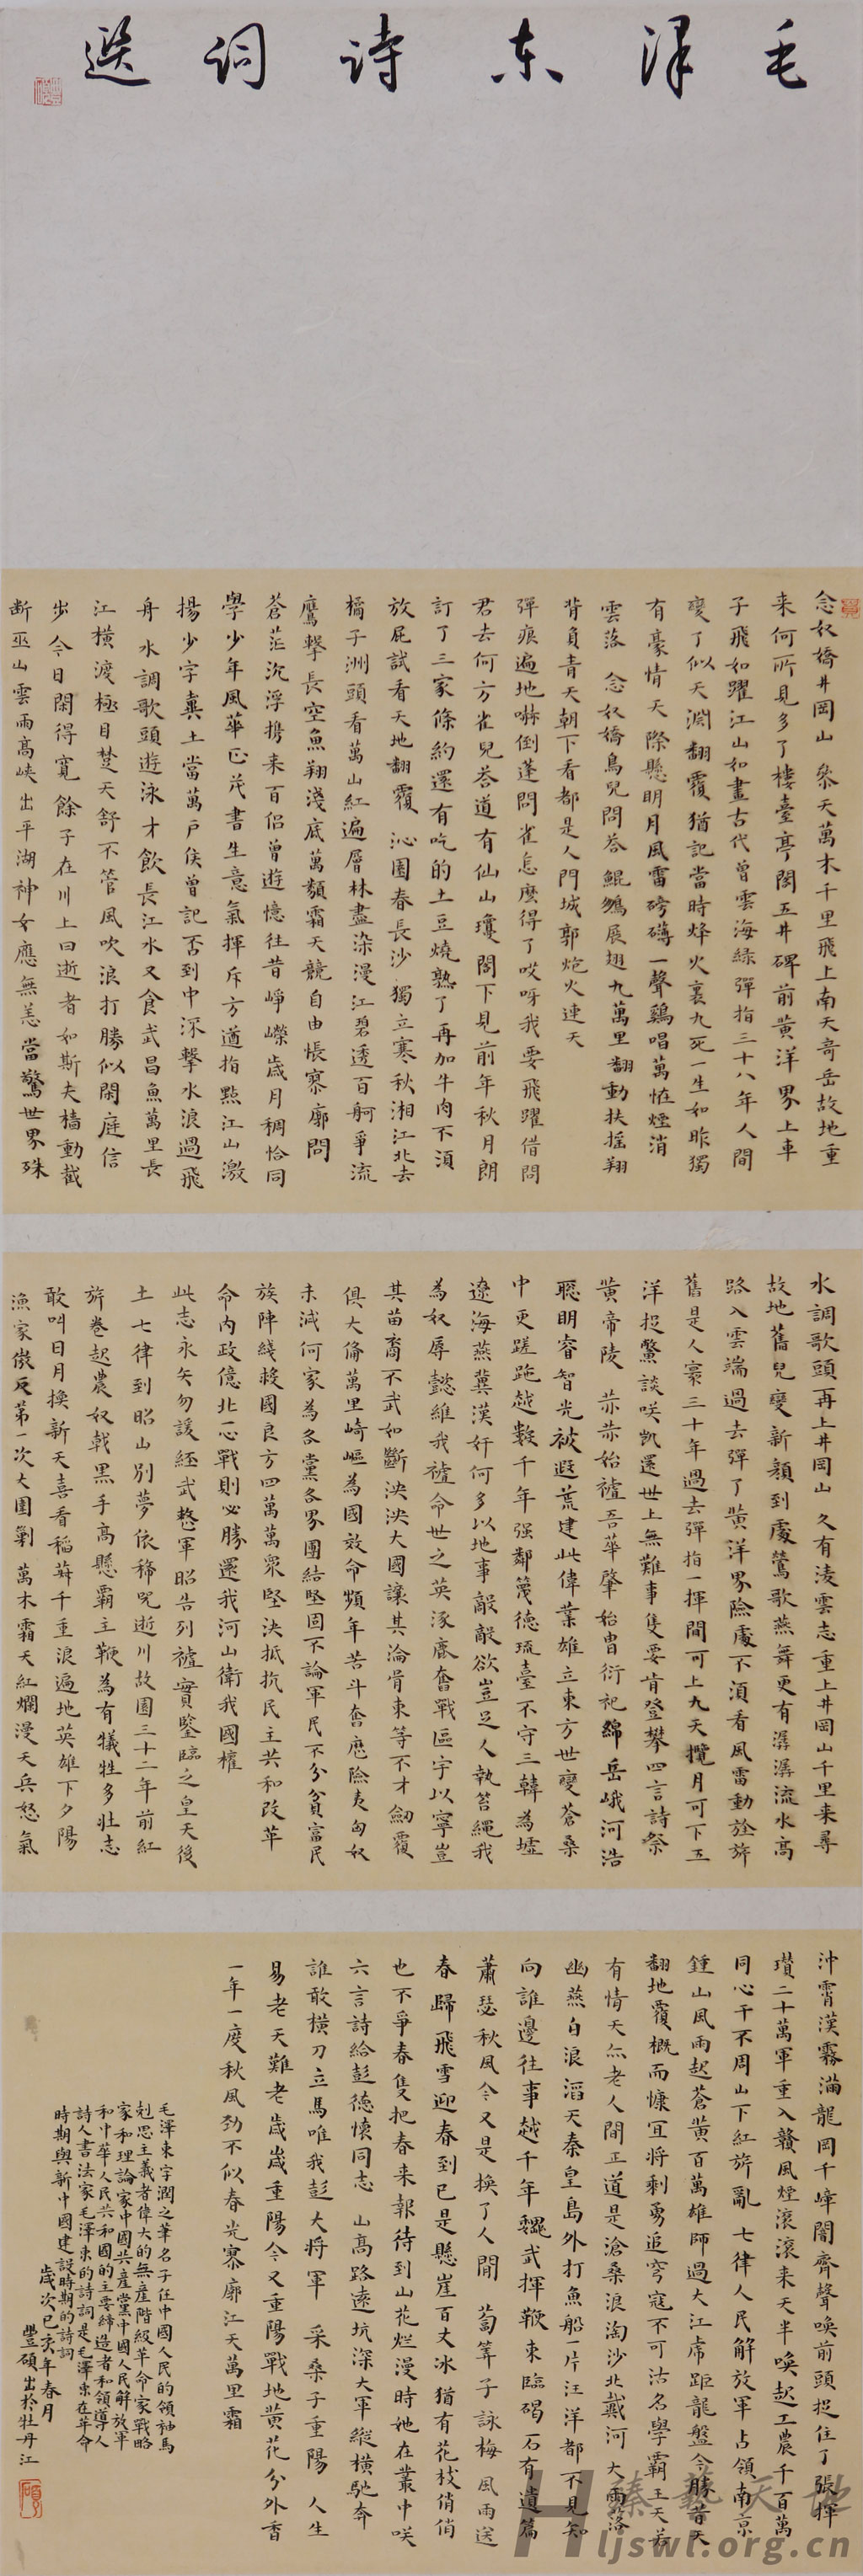 毛泽东诗词选
念奴嬌井岡山 參天萬木千里飛上南天奇岳故地重
来何所見多了樓臺亭閣五井碑前黄洋界上車
子飛如躍江山如畫古代曾雲海綠彈指三十八年人間
變了似天淵翻覆猶記當時烽火裏九死一生如昨獨
有豪情天際懸明月風雷磅礴一聲鷄唱萬怪煙消
雲落 念奴嬌鳥兒問答 鯤鵬展翅九萬里翻動扶摇羊角
背負青天朝下看都是人間城郭炮火連天
彈痕遍地嚇倒蓬間雀怎麽得了哎呀我要飛躍借問
君去何方雀兒答道有仙山瓊閣不見前年秋月朗
訂了三家條約還有吃的土豆燒熟了再加牛肉不須
放屁試看天地翻覆 沁園春長沙 獨立寒秋湘江北去
橘子洲頭看萬山紅遍層林盡染漫江碧透百舸爭流
鷹擊長空魚翔淺底萬類霜天競自由悵寥廓問
蒼茫沉浮携来百侣曾遊憶往昔崢嶸歲月稠恰同
學少年風華正茂書生意氣揮斥方遒指點江山激
揚少字糞土當萬户侯曾記否到中流擊水浪遏飛
舟 水調歌頭遊泳 才飲長江水又食武昌魚萬里長
江橫渡極目楚天舒不管風吹浪打勝似閑庭信
步今日閑得寬餘子在川上曰逝者如斯夫檣動截
断巫山雲雨高峽出平湖神女應無恙當驚世界殊
水調歌頭再上井岡山 久有淩雲志重上井岡山千里来尋
故地舊貌變新顔到處鶯歌燕舞更有潺潺流水高
路入雲端過去彈了黄洋界險處不須看風雷動旌旂
舊是人寰三十年過去彈指一揮間可上九天攬月可下五
洋捉鱉談笑凯還世上無難事隻要肯登攀 四言詩祭
黄帝陵 赫赫始祖吾華肇始胄衍祀綿岳峨河浩
聰明睿智光被遐荒建此偉業雄立東方世變蒼桑
中更蹉跎越數千年强鄰蔑德琉臺不守三韓為墟
遼海燕冀漢奸何多以地事敵敵欲豈足人執笞繩我
為奴辱懿維我祖命世之英涿鹿奮戰區宇以寧豈
其苗裔不武如斯泱泱大國讓其淪胥東等不才劍屨
俱大倫萬里崎嶇為國效命頻年苦斗奮歷險夷匈奴
未滅何家為各黨各界團結堅固不論軍民不分貧富民
族陣綫救國良方四萬萬衆堅決抵抗民主共和改革
命内政億兆一心戰則必勝還我河山衛我國權
此志永矢勿諼經武整軍昭告列祖實鑒臨之皇天後
土 七律到韶山 别夢依稀咒逝川故園三十二年前紅
旂卷起農奴戟黑手高懸霸主鞭為有犧牲多壯志
敢叫日月換新天喜看稻菽千重浪遍地英雄下夕陽
漁家傲反第一次大圍剿 萬木霜天紅爛漫天兵怒氣
沖霄漢霧滿龍岡千嶂闇齊聲唤前頭捉住了張輝
瓚二十萬軍重入贛風煙滚滚来天半唤起工農千百萬
同心干不周山下紅旂亂 七律人民解放軍占領南京
鍾山風雨起蒼黄百萬雄師過大江虎踞龍盤今勝昔天
翻地覆概而慷宜將剩勇追窮寇不可沽名學霸王天若
有情天亦老人間正道是滄桑 浪淘沙北戴河 大雨落
幽燕白浪滔天秦皇島外打魚船一片汪洋都不見知
向誰邊往事越千年魏武揮鞭東臨碣石有遺篇
蕭瑟秋風今又是換了人間 蔔算子詠梅 風雨送
春歸飛雪迎春到已是懸崖百丈冰猶有花枝俏俏
也不爭春隻把春来報待到山花烂漫時她在叢中咲
六言詩給彭德懷同志 山高路遠坑深大軍縱横馳奔
誰敢横刀立馬唯我彭大將軍 采桑子重陽 人生
易老天難老歲歲重陽今又重陽戰地黄花分外香
一年一度秋風勁不似春光寥廓江天萬里霜
毛澤東字潤之筆名子任中國人民的領袖馬
剋思主義者偉大的無産階級革命家戰略
家和理論家中國共産黨中國人民解放軍
和中華人民共和國的主要締造者和領導人
詩人書法家毛澤東的詩詞是毛澤東在革命
時期與新中國建設時期的詩詞
歲次己亥年春月
豐碩出於牡丹江
臻藝天地
Hljswl.org.cn